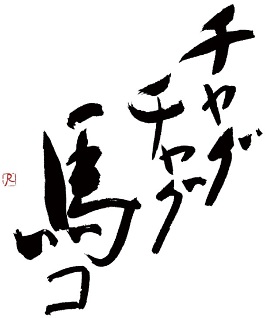 チャグ
チャグ
馬コ